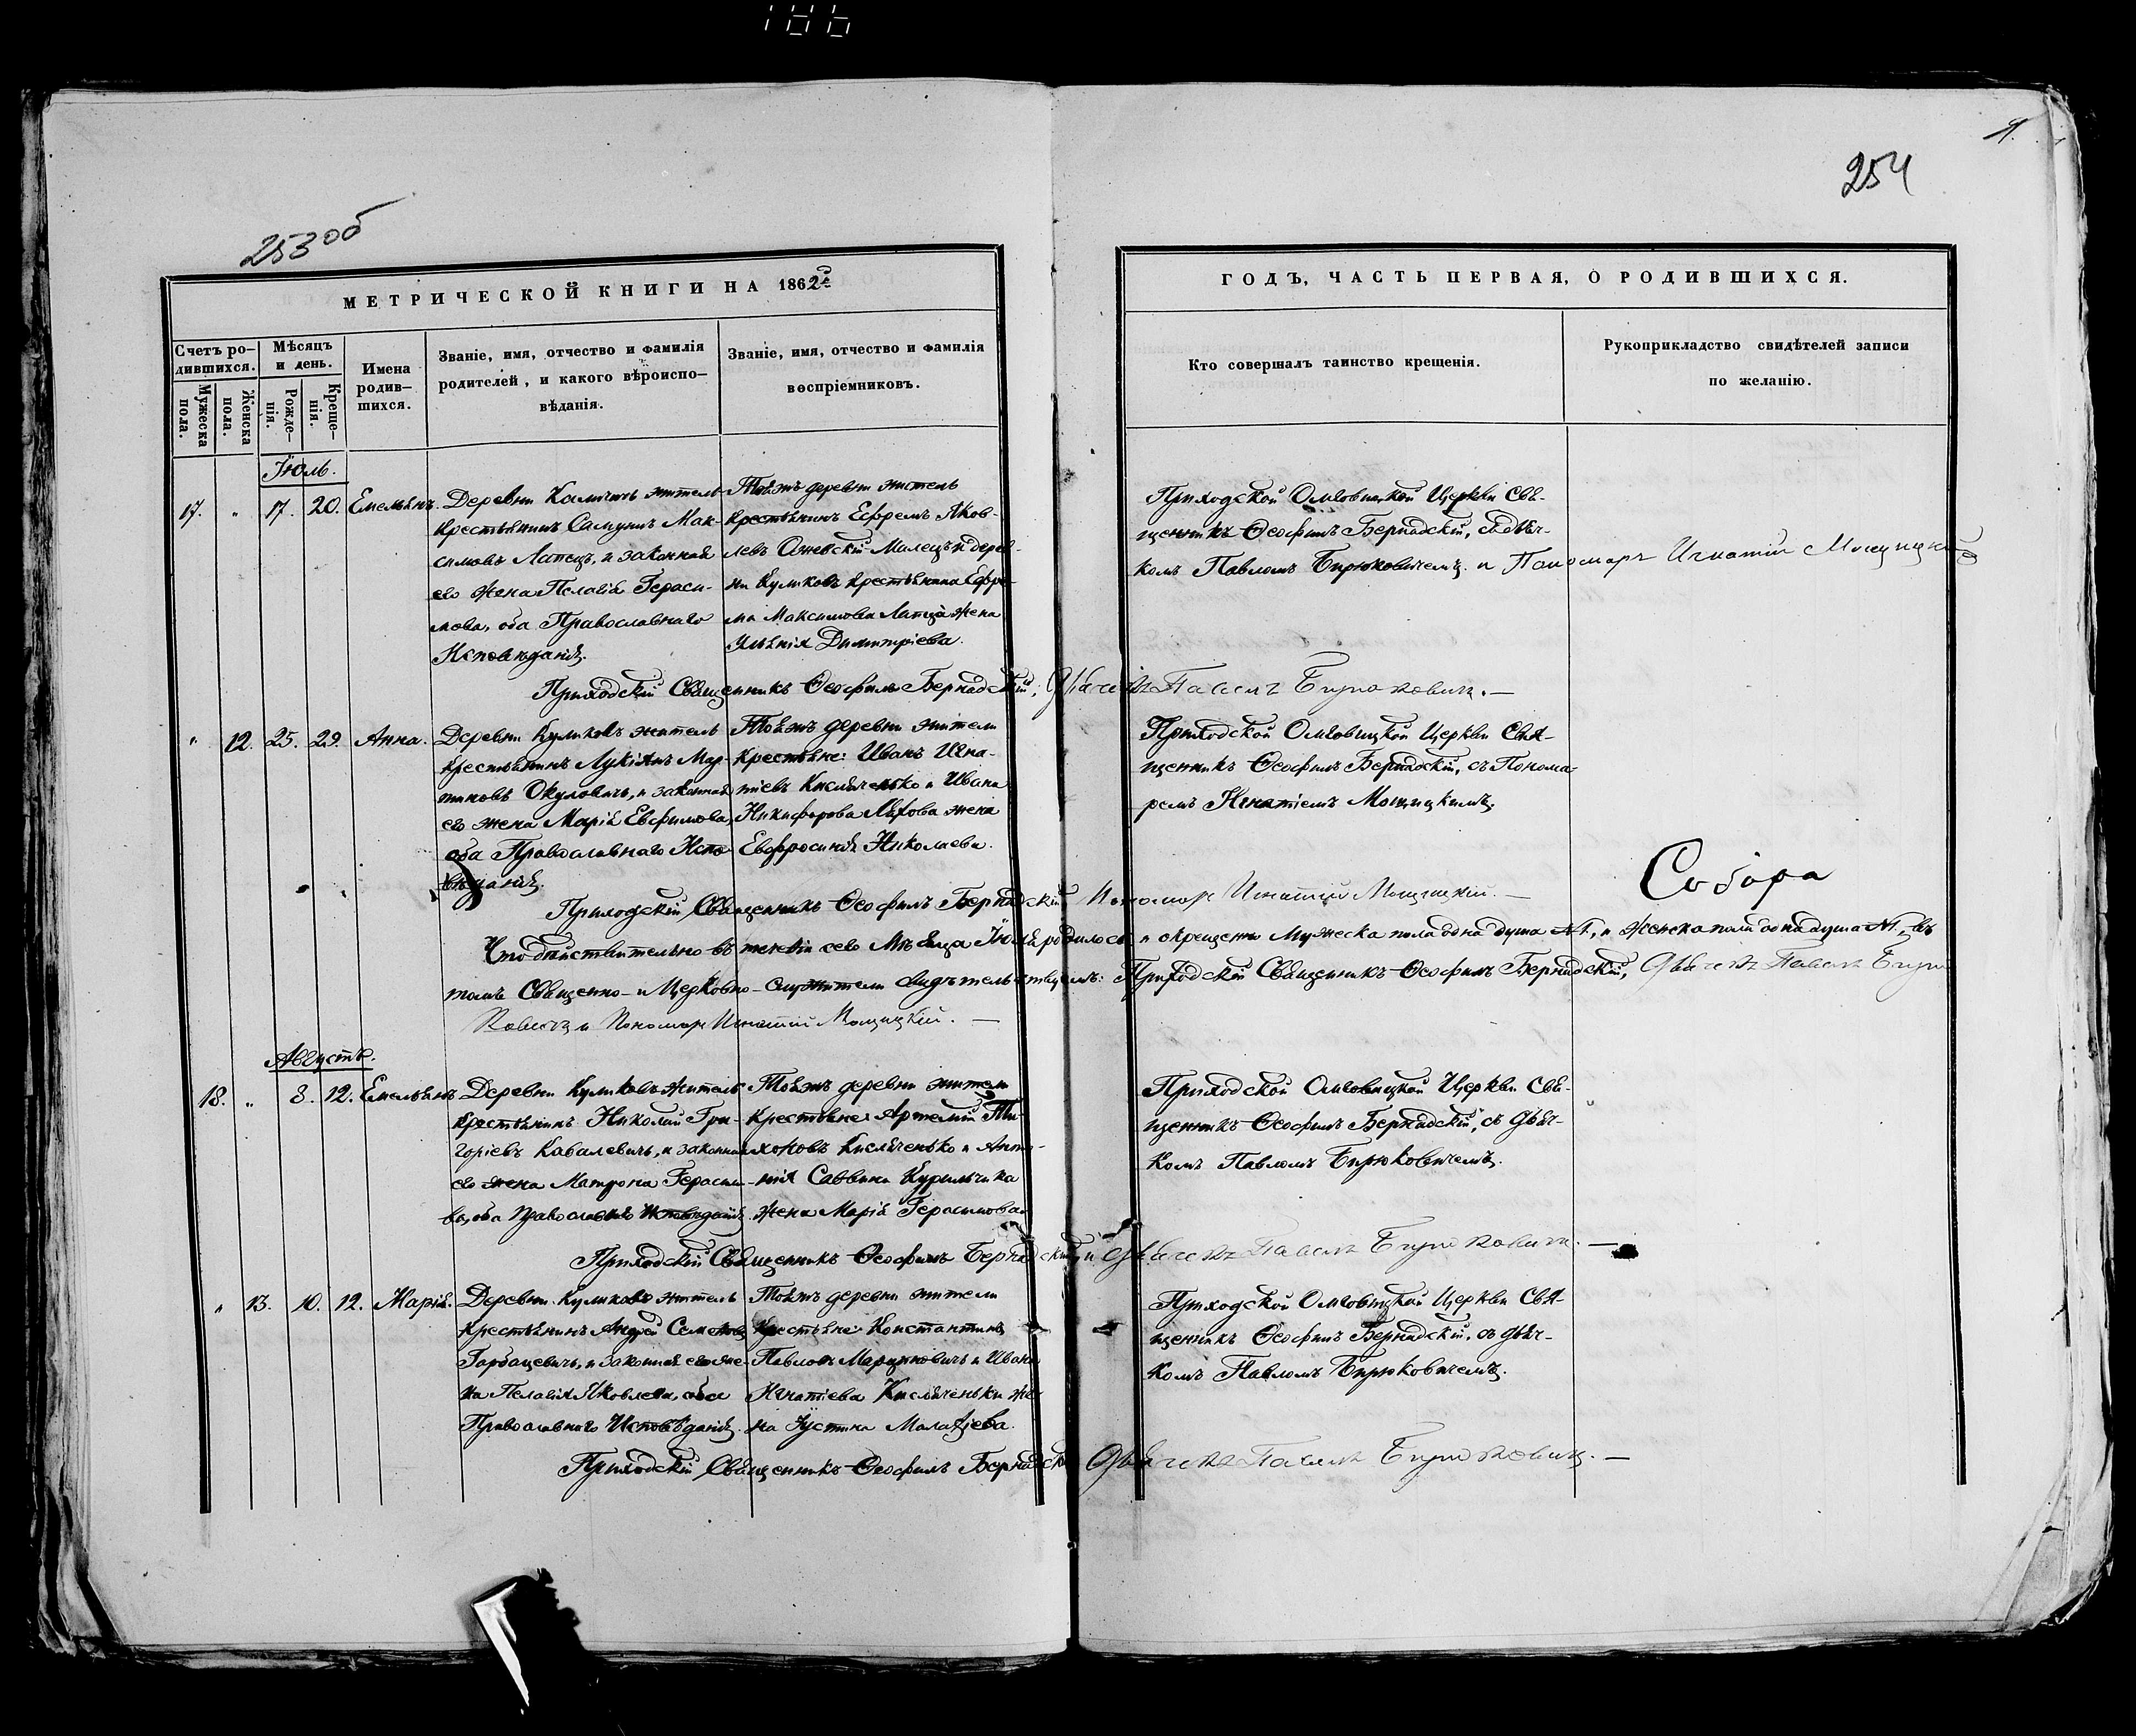 186
9.
254
253об
МЕТРИЧЕСКОЙ КНИГИ НА 1862й
ГОДЪ, ЧАСТЬ ПЕРВАЯ, О РОДИВШИХСЯ.
Счетъ ро-
дившихся.
Мужеска
пола.
Женска
пола.
Мѣсяцъ
и день.
Рожде-
нія.
Креще-
нія.
Имена
родив-
шихся.
Званіе, имя, отчество и фамилія
родителей, и какого вѣроиспо-
вѣданія.
Званіе, имя, отчество и фамилія
воспріемниковъ.
Кто совершалъ таинство крещенія.
Рукоприкладство свидѣтелей записи
по желанію.
Іюль.
17. „ 17. 20. Емельянъ.
Деревни житель
крестьянинъ Мак-
симовъ Лапецъ, и законная
его жена Пелагія Гераси-
мова, оба Православнаго
Исповѣданія.
Тоѣжъ деревни житель
крестьянинъ Ефремъ Яков-
левъ Малецъ и дерев-
ни Куликовъ крестьянина Ефре-
ма Максимова Лапца жена
Ульянія Димитріева.
Приходской Церкви Свя-
щенникъ Ѳеофилъ Бернадскій, съ Дьяч-
комъ Павломъ Бирюковичемъ. и Пономарь Игнатій Мощицкій
Приходскій Священникъ Ѳеофилъ Бернадскій, Дьячекъ Павелъ Бирюковичъ. —
„ 12. 25. 29. Анна.
Деревни Куликовъ житель
крестьянинъ Лукіянъ Мар-
тиновъ Окуловичъ, и законная
его жена Марія Евфимова,
оба Православнаго Испо-
вѣданія.
Тоѣжъ деревни жители
крестьяне: Иванъ Игна-
тіевъ Кисляченько и Ивана
Никифорова жена
Евфросинія Николаева.
Приходской Церкви Свя-
щенникъ Ѳеофилъ Бернадскій, съ Понома-
ремъ Игнатіемъ Мощицкимъ.
Собора
Приходскій Священникъ Ѳеофилъ Бернадскій Пономарь Игнатій Мощицкій. —
Что дѣйствительно въ теченіи сего Мѣсяца Іюля родилось и окрещено Мужеска пола одна душа №1, и Женска пола одна душа №1, въ
томъ Священно- и Церковно-служители свидѣтельствуемъ: Приходскій Священникъ Ѳеофилъ Бернадскій, Дьячекъ Павелъ Бирю
ковичъ и Пономарь Игнатій Мощицкій. —
Августъ.
18. „ 8. 12. Емельянъ
Деревни Куликовъ житель
крестьянинъ Николай Гри-
горіевъ Кавалевичъ, и законная
его жена Матрона Гераси-
ва, оба Православнаго Исповѣданія.
Тоѣжъ деревни жители
крестьяне: Артемій Ти-
хоновъ Кисляченько и Анто-
нія Саввина Курильчика
жена Марія Герасимова.
Приходской Церкви Свя-
щенникъ Ѳеофилъ Бернадскій, съ Дьяч-
комъ Павломъ Бирюковичемъ.
Приходскій Священникъ Ѳеофилъ Бернадскій, и Дьячекъ Павелъ Бирюковичъ. —
„ 13. 10. 12. Марія.
Деревни Куликовъ житель
крестьянинъ Андрей Семеновъ
Горбацевичъ, и законная его же-
на Пелагія Яковлева, оба
Православнаго Исповѣданія.
Тоѣжъ деревни жители
крестьяне: Константинъ
Павловъ Марцинковичъ и Ивана
Игнатіева Кисляченьки же-
на Іустина Малафіева.
Приходской Церкви Свя-
щенникъ Ѳеофилъ Бернадскій, съ Дьяч-
комъ Павломъ Бирюковичемъ.
Приходскій Священникъ Ѳеофилъ Бернадскій Дьячекъ Павелъ Бирюковичъ. —